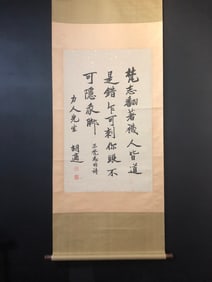 梵志翻著襪人皆道
是錯乍可刺你眼不
可隱我腳
王梵志的詩
力人先生
胡適